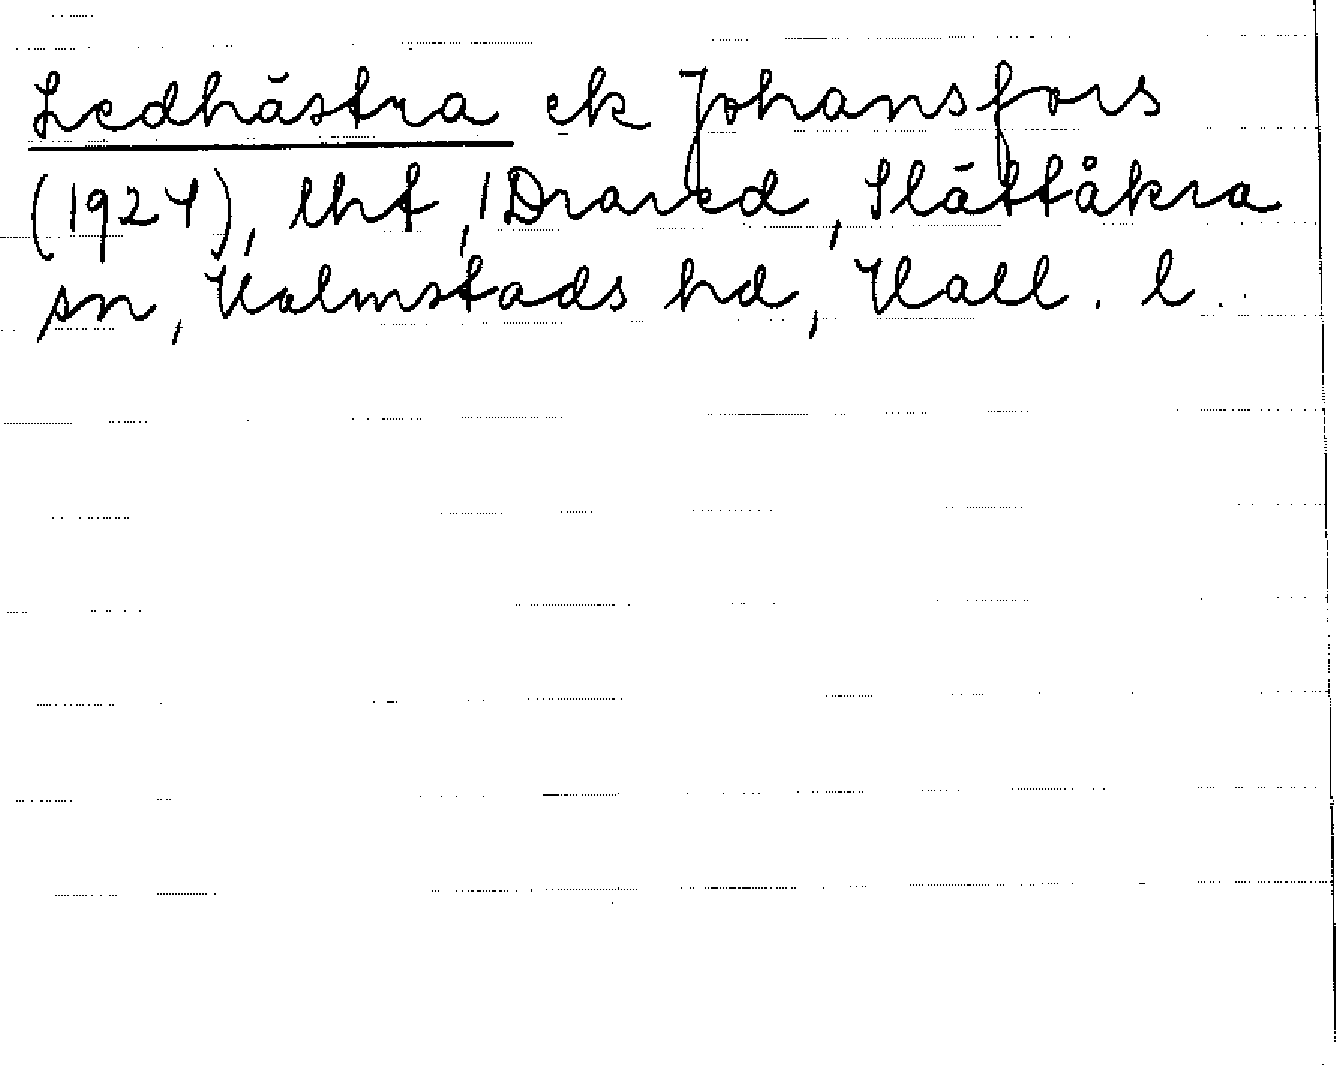 Ledhästra ek Johansfors
(1924), lht, 1 Drared, Slättåkra
sn, Halmstads hd, Hall. l.